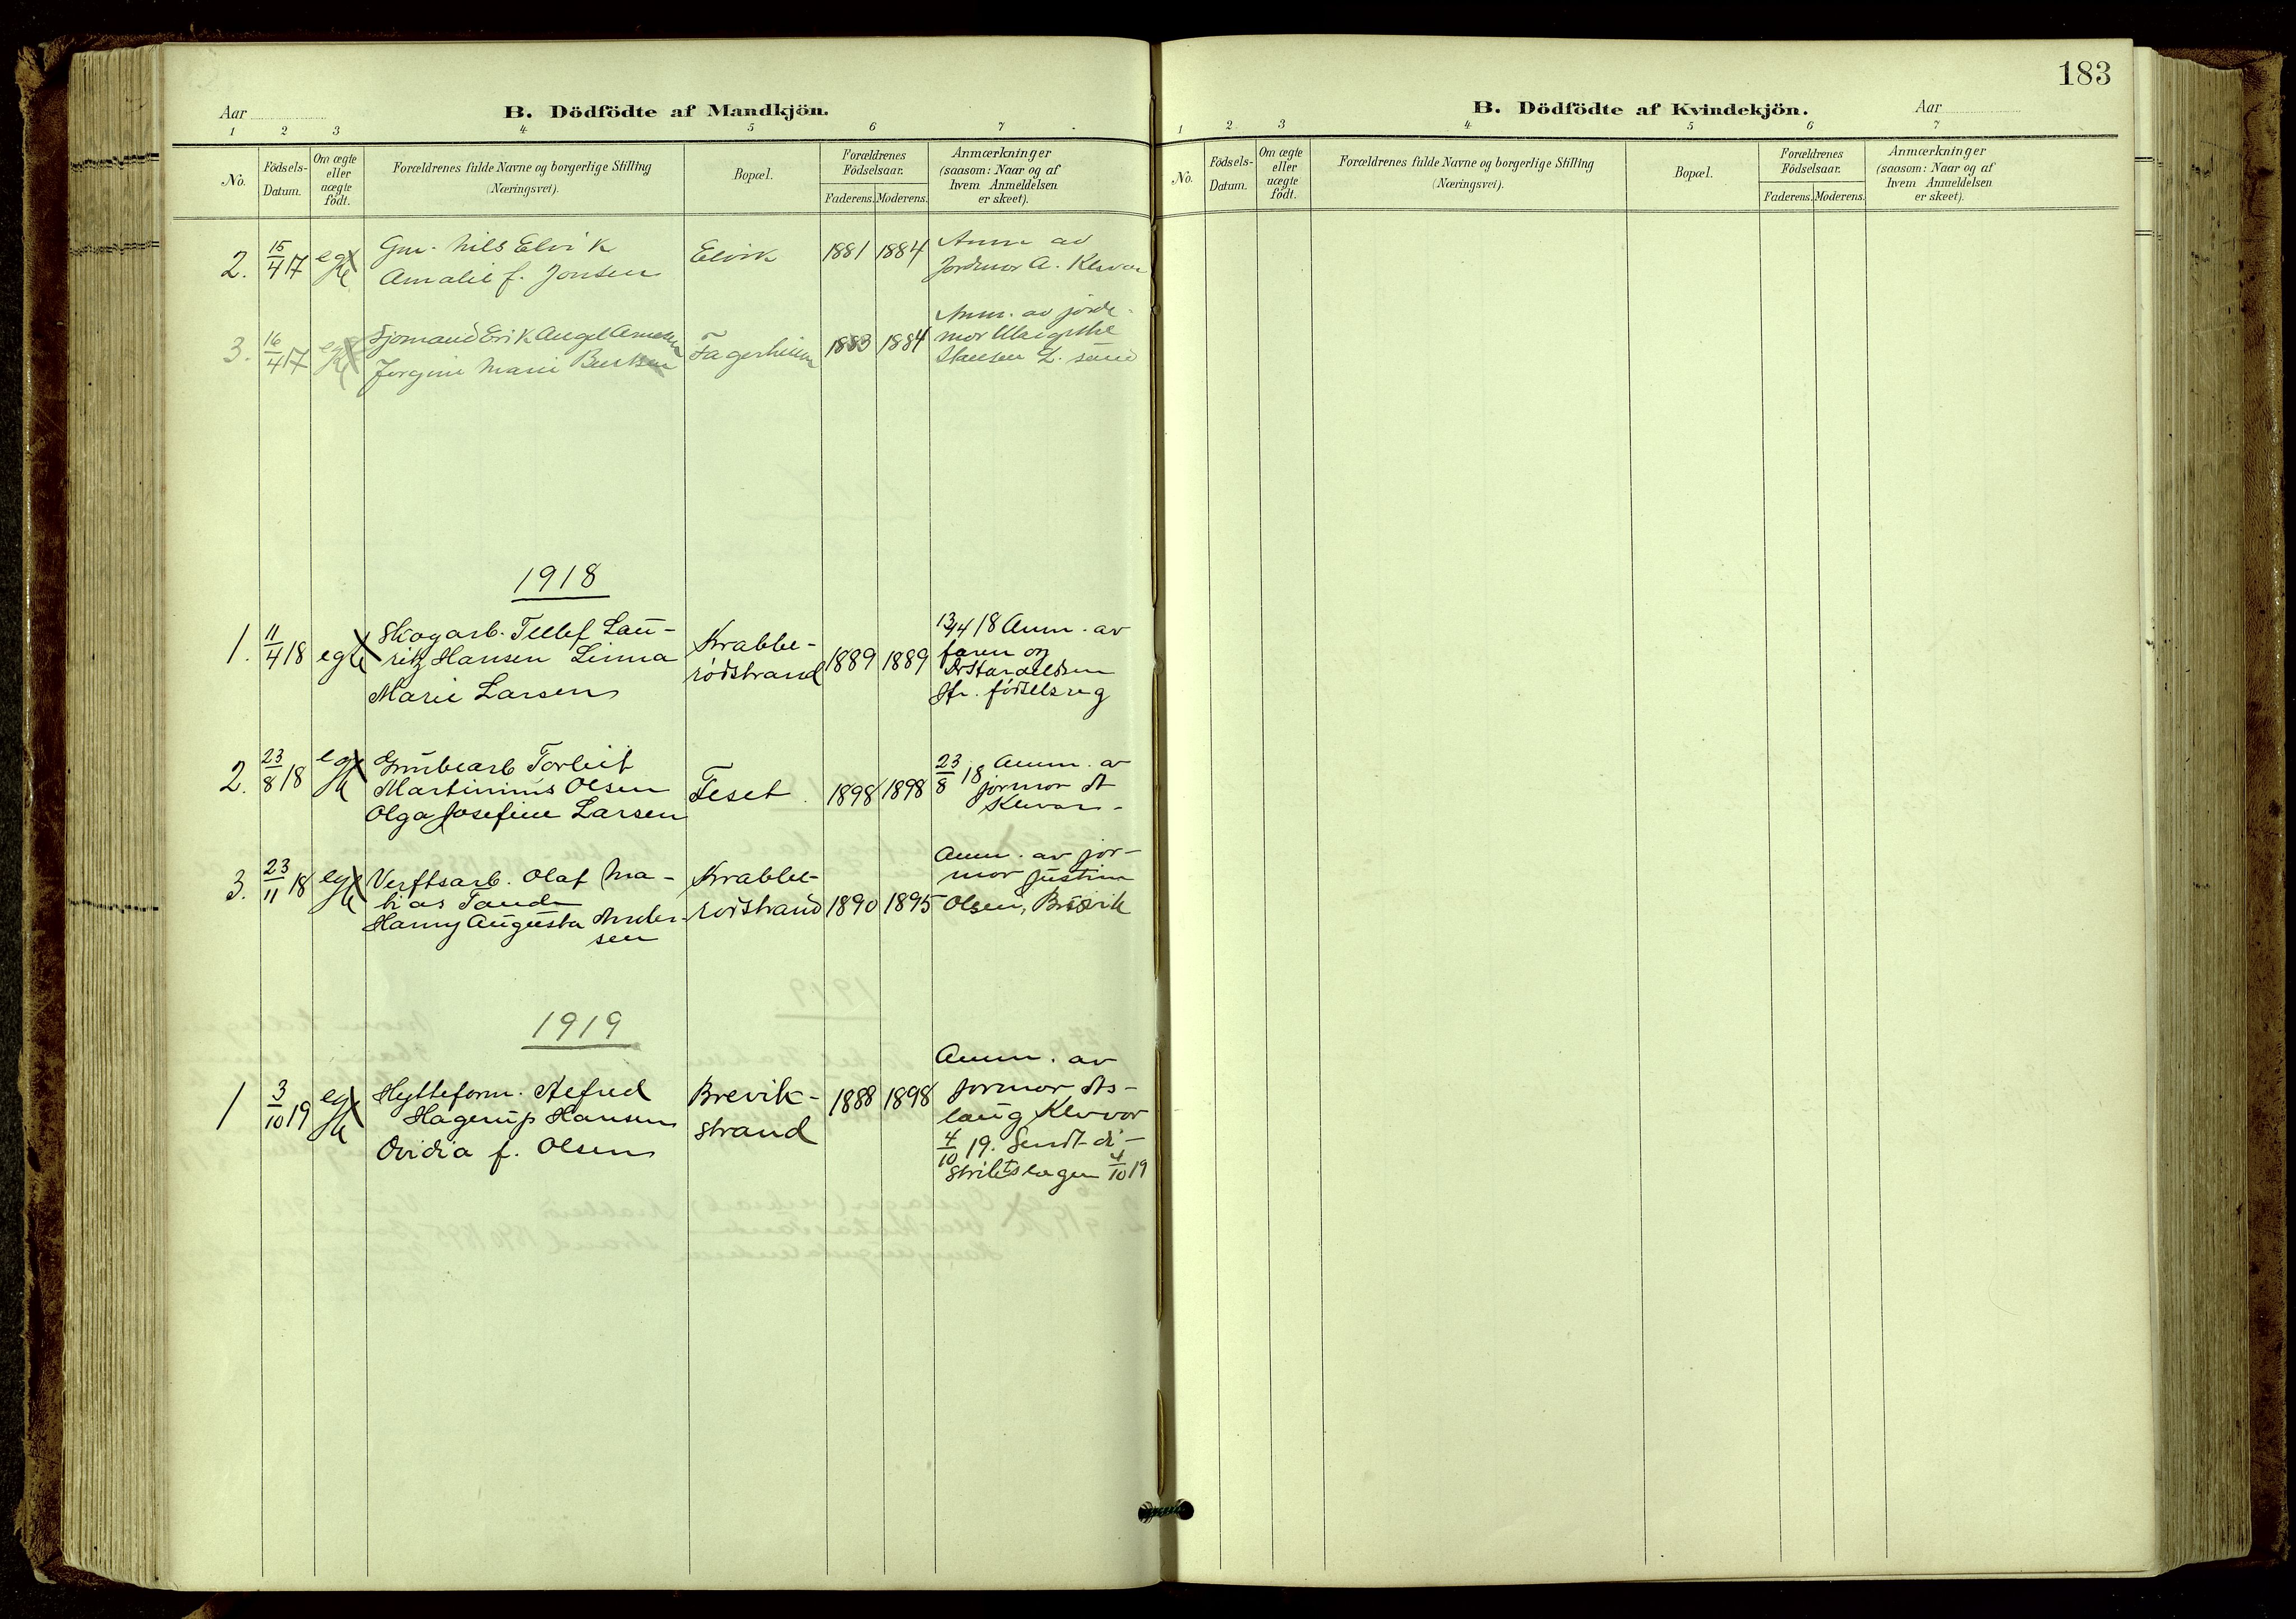 Aar
B. Dödfödte af Mandkjön.
1 2 3 4 5 6 7
No.
Födsels-
Datum.
Om ægte
eller
uægte
födt.
Forældrenes fulde Navne og borgerlige Stilling
(Næringsvei).
Bopæl.
Forældrenes
Födselsaar.
Faderens. Moderens.
Anmærkninger
(saasom: Naar og af
hvem Anmeldelsen
er skeet).
2. 15/4 17 egte
Gm. Nils Elvik
Amalie f. Jonsen
Elvik
1881 1884
Anm av
Jordmor A. Klevar
3. 16/4 17 egte
Sjomand Erik Angel
Jørgine Marie
Fagerheim
1883 1884
Anm. av jorde-
mor
Hansen L. sund
1918
1. 11/4 18 egte
Skogarb. Tellef Lau-
ritz Hansen Linna
Marie Larsen
Krabbe-
rödstrand
1889 1889
13/4 18 Anm. av
faren og
Haraldsen
Jfr. födselsreg
2. 23/8 18 egte
Grubearb Torleif
Martinius Olsen
Olga Josefine Larsen
Feset
1898 1898
23/8 18 Anm. av
jormor A
Klevar
3. 23/11 18 egte
Verftsarb. Olaf Ma-
tias Tande
Hanny Augusta Ander-
sen
Krabbe-
rödstrand
1890 1895
Anm. av jor-
mor Justine
Olsen, Brevik
1919
1 3/10 19 egte
Hytteform. Alfred
Hagerup Hansen
Ovidia f. Olsen
Brevik-
strand
1888 1898
Anm. av
Jormor As-
laug Klevar
4/10 19. Sendt di-
striktslægen 4/10 19
183
B. Dödfödte af Kvindekjön.
Aar
1 2 3 4 5 6 7
No.
Födsels-
Datum.
Om ægte
eller
uægte
födt.
Forældrenes fulde Navne og borgerlige Stilling
(Næringsvei).
Bopæl.
Forældrenes
Födselsaar.
Faderens. Moderens.
Anmærkninger
(saasom: Naar og af
hvem Anmeldelsen
er skeet).